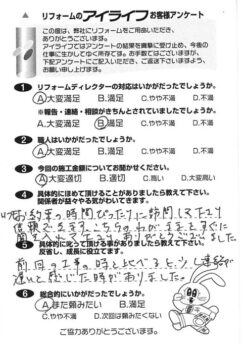 リフォームのアイライフお客様アンケート
この度は、弊社にリフォームをご用命いただき、
ありがとうございます。
アイライフではアンケートの結果を真摯に受け止め、今後の
仕事に生かしてゆく所存です。お手数ではございますが、
下記アンケートにご記入いただき、ご返送下さいますよう、
お願い申し上げます。
1 リフォームディレクターの対応はいかがだったでしょうか。
A.大変満足 B.満足 C.やや不満 D.不満
※報告・連絡・相談がきちんとされていましたでしょうか。
A.大変満足 B.満足 C.やや不満 D.不満
2 職人はいかがだったでしょうか。
A.大変満足 B.満足 C.やや不満 D.不満
3 今回の施工金額についてお聞かせください。
A.大変適切 B.適切 C.高い D.大変高い
4 具体的にほめて頂けることがありましたら教えて下さい。
関係者が益々やる気がわいてきます。
お約束の時間ぴったりに訪問して下さり
信頼できます。こちらのわがままもすぐに
5 具体的に叱って頂ける事がありましたら教えて下さい。
反省し、成長に役立てます。
前回の工事の時と比べると、少し連絡が
遅いと感じた時がありました。
6 総合的にいかがだったでしょうか。
A.また頼みたい B.満足
C.やや不満 D.次回は頼みたくない
ご協力ありがとうございます。